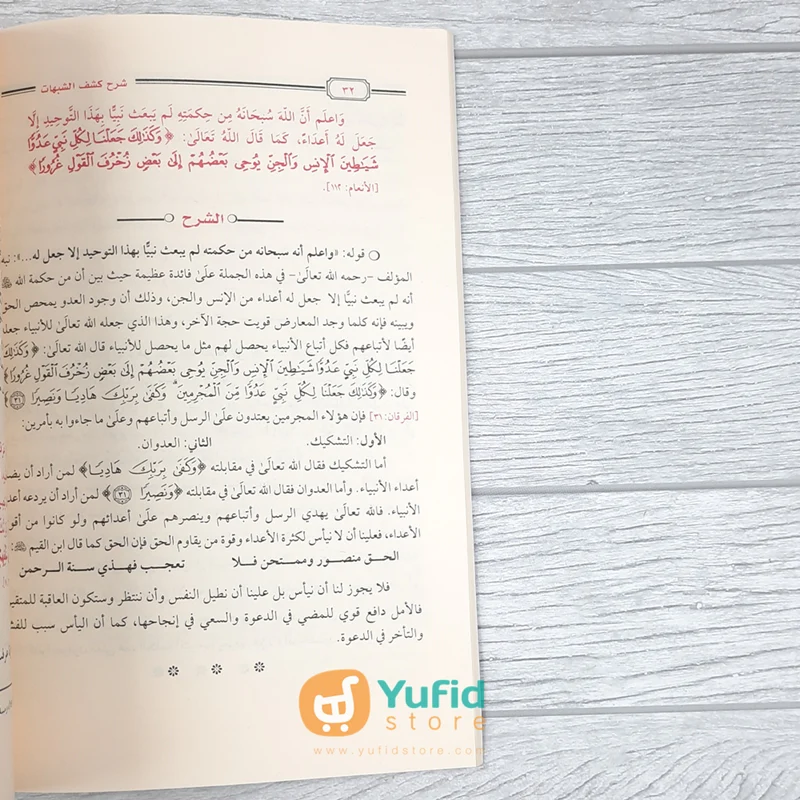 ٣٢
شرح كشف الشبهات
وَاعلَم أَنَّ اللَّهَ سُبحَانَهُ مِن حِكمَتِهِ لَم يَبعَث نَبِيًّا بِهَذَا التَّوحِيدِ إلَّا
جَعَلَ لَهُ أَعدَاءً، كَمَا قَالَ اللَّهُ تَعَالَىٰ: ﴿وَكَذَٰلِكَ جَعَلْنَا لِكُلِّ نَبِيٍّ عَدُوًّا
شَيَـٰطِينَ ٱلْإِنسِ وَٱلْجِنِّ يُوحِى بَعْضُهُمْ إِلَىٰ بَعْضٍ زُخْرُفَ ٱلْقَوْلِ غُرُورًا﴾
[الأنعام: ١١٢].
الشرح
قوله: «واعلم أنه سبحانه من حكمته لم يبعث نبيًّا بهذا التوحيد إلا جعل له...»: نبه
المؤلف -رحمه الله تعالىٰ- في هذه الجملة علىٰ فائدة عظيمة حيث بين أن من حكمة الله ﷻ
أنه لم يبعث نبيًّا إلا جعل له أعداء من الإنس والجن، وذلك أن وجود العدو يمحص الحق
ويبينه فإنه كلما وجد المعارض قويت حجة الآخر، وهذا الذي جعله الله تعالىٰ للأنبياء جعله
أيضًا لأتباعهم فكل أتباع الأنبياء يحصل لهم مثل ما يحصل للأنبياء قال الله تعالىٰ: ﴿وَكَذَٰلِكَ
جَعَلْنَا لِكُلِّ نَبِيٍّ عَدُوًّا شَيَـٰطِينَ ٱلْإِنسِ وَٱلْجِنِّ يُوحِى بَعْضُهُمْ إِلَىٰ بَعْضٍ زُخْرُفَ ٱلْقَوْلِ غُرُورًا﴾
وقال: ﴿وَكَذَٰلِكَ جَعَلْنَا لِكُلِّ نَبِيٍّ عَدُوًّا مِّنَ ٱلْمُجْرِمِينَ ۗ وَكَفَىٰ بِرَبِّكَ هَادِيًا وَنَصِيرًا ٣١﴾
[الفرقان: ٣١] فإن هؤلاء المجرمين يعتدون علىٰ الرسل وأتباعهم وعلىٰ ما جاءوا به بأمرين:
الأول: التشكيك. الثاني: العدوان.
أما التشكيك فقال الله تعالىٰ في مقابلته ﴿وَكَفَىٰ بِرَبِّكَ هَادِيًا﴾ لمن أراد أن
أعداء الأنبياء. وأما العدوان فقال الله تعالىٰ في مقابلته ﴿وَنَصِيرًا ٣١﴾ لمن أراد أن يردعه
الأنبياء. فالله تعالىٰ يهدي الرسل وأتباعهم وينصرهم علىٰ أعدائهم ولو كانوا من
الأعداء، فعلينا أن لا نيأس لكثرة الأعداء وقوة من يقاوم الحق فإن الحق كما قال ابن القيم :
الحق منصور وممتحن فلا تعجب فهذي سنة الرحمن
فلا يجوز لنا أن نيأس بل علينا أن نطيل النفس وأن ننتظر وستكون العاقبة
فالأمل دافع قوي للمضي في الدعوة والسعي في إنجاحها، كما أن اليأس سبب
والتأخر في الدعوة.
Yufid
store
www.yufidstore.com